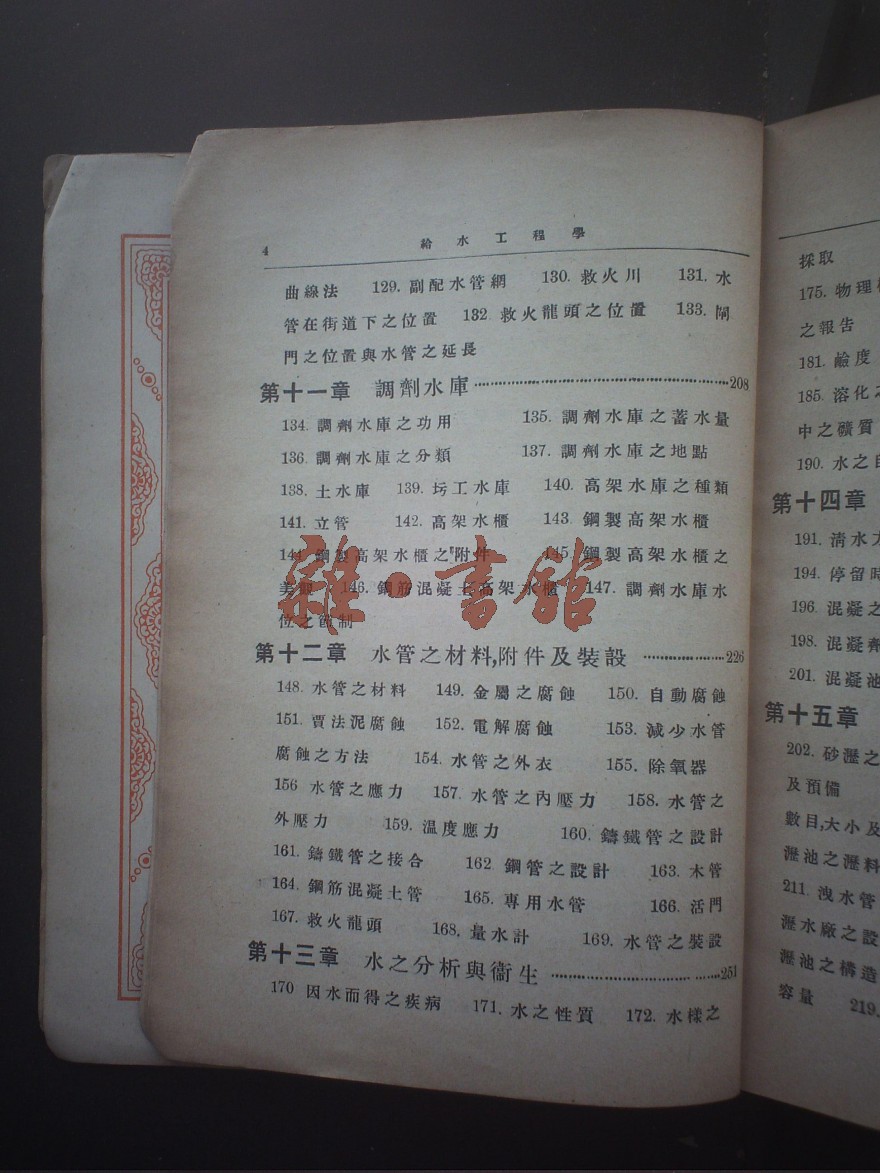 4 給水工程學
曲線法 129. 副配水管網 130. 救火川 131. 水
管在街道下之位置 132 救火龍頭之位置 133. 閘
門之位置與水管之延長
第十一章 調劑水庫 208
134. 調劑水庫之功用 135. 調劑水庫之蓄水量
136. 調劑水庫之分類 137. 調劑水庫之地點
138. 土水庫 139. 圬工水庫 140. 高架水庫之種類
141. 立管 142. 高架水櫃 143. 鋼製高架水櫃
144. 鋼製高架水櫃之附件 145. 鋼製高架水櫃之
美觀 146. 鋼筋混凝土高架水櫃 147. 調劑水庫水
位之節制
雜·書館
第十二章 水管之材料,附件及裝設 226
148. 水管之材料 149. 金屬之腐蝕 150. 自動腐蝕
151. 賈法泥腐蝕 152. 電解腐蝕 153. 減少水管
腐蝕之方法 154. 水管之外衣 155. 除氧器
156 水管之應力 157. 水管之內壓力 158. 水管之
外壓力 159. 溫度應力 160. 鑄鐵管之設計
161. 鑄鐵管之接合 162 鋼管之設計 163. 木管
164. 鋼筋混凝土管 165. 專用水管 166. 活門
167. 救火龍頭 168. 量水計 169. 水管之裝設
第十三章 水之分析與衞生 251
170 因水而得之疾病 171. 水之性質 172. 水樣之
採取
175. 物理
之報告
181. 鹼度
185. 溶化
中之礦質
190. 水之
第十四章
191. 清水
194. 停留時
196. 混凝之
198. 混凝劑
201. 混凝池
第十五章
202. 砂瀝之
及預備
數目,大小及
瀝池之瀝料
211. 洩水管
瀝水廠之設
瀝池之構造
容量 219.